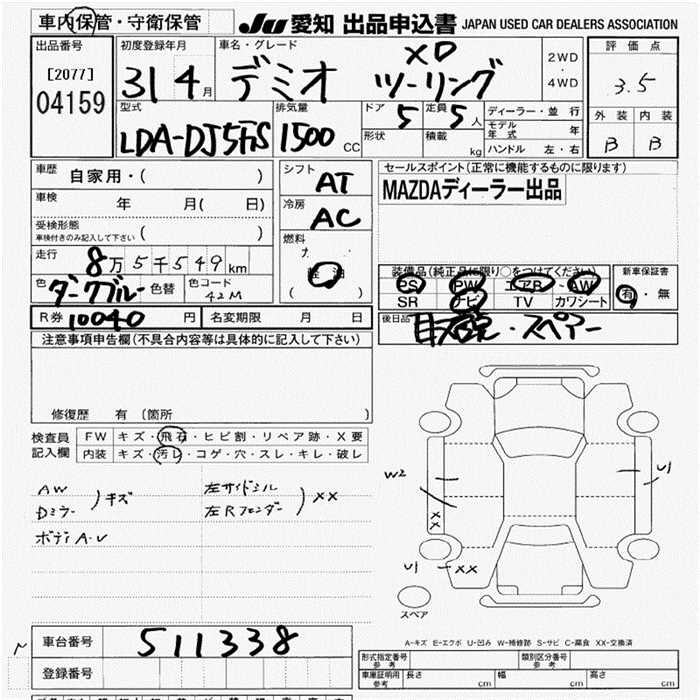 車内保管・守衛保管 Ju 愛知 出品申込書 JAPAN USED CAR DEALERS ASSOCIATION
出品番号 [2077] 04159
初度登録年月 31 4月
車名・グレード デミオ XD ツーリング
2WD・4WD
評価点 3.5
外装 B 内装 B
型式 LDA-DJ5FS
排気量 1500 CC
ドア 5 定員 5人
形状 積載 kg
ディーラー・並行
モデル年式 年
ハンドル 左・右
車歴 自家用・( )
車検 年 月( 日)
受検形態 ( )
車検付きのみ記入して下さい
走行 8万5千549km
色 ダークブルー 色替 色コード 42M
シフト AT
冷房 AC
燃料 軽油
( )
セールスポイント(正常に機能するものに限ります)
MAZDAディーラー出品
装備品(純正品に限り○をつけてください)
PS PW エアB AW
SR ナビ TV カワシート
新車保証書 有・無
R券 10040 円 名変期限 月 日
後日品 取説・スペアー
注意事項申告欄(不具合内容等は具体的に記入して下さい)
修復歴 有 (箇所 )
検査員記入欄
FW キズ・飛石・ヒビ割・リペア跡・X要
内装 キズ・汚レ・コゲ・穴・スレ・キレ・破レ
AW
Dミラー )キズ
左サイドミル
左Rフェンダー )XX
ボディA・U
W2
XX
U1
U1
XX
スペア
A-キズ E-エクボ U-凹み W-補修跡 S-サビ C-腐食 XX-交換済
車台番号 511338
登録番号
形式指定番号 参考
類別区分番号 参考
車庫証明用 参考 長さ cm 幅 cm 高さ cm